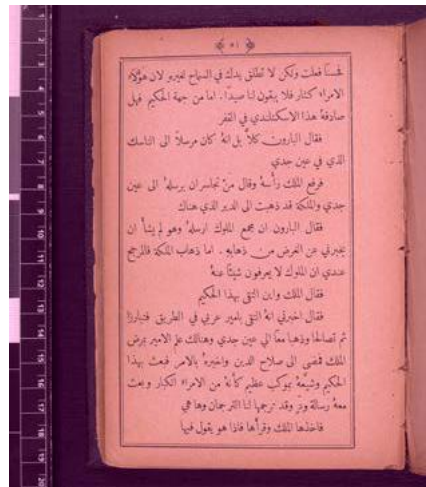 ﴿ ٥١ ﴾
فحسنًا فعلت ولكن لا تطلق يدك في السماح لغيره لان هؤلاء
الامراء كثار فلا يبقون لنا صيدًا. اما من جهة الحكيم فهل
صادفهُ هذا الاسكتلندي في القفر
فقال البارون كلاَّ بل انهُ كان مرسلاً الى الناسك
الذي في عين جدي
فرفع الملك رأسهُ وقال منْ تجاسر ان يرسلهُ الى عين
جدي والملكة قد ذهبت الى الدير الذي هناك
فقال البارون ان مجمع الملوك ارسلهُ وهو لم يشأ ان
يخبرني عن الغرض من ذهابه. اما ذهاب الملكة فالمرجح
عندي ان الملوك لا يعرفون شيئًا عنهُ
فقال الملك واين التقى بهذا الحكيم
فقال اخبرني انهُ التقى بامير عربي في الطريق فتبارزا
ثم تصالحا وذهبا معًا الى عين جدي وهنالك علم الامير بمرض
الملك فمضى الى صلاح الدين واخبرهُ بالامر فبعث بهذا
الحكيم وشيعهُ بموكب عظيم كأنهُ من الامراء الكبار وبعث
معهُ رسالة وقد ترجمها لنا الترجمان وها هي
فاخذها الملك وقرأها فاذا هو يقول فيها